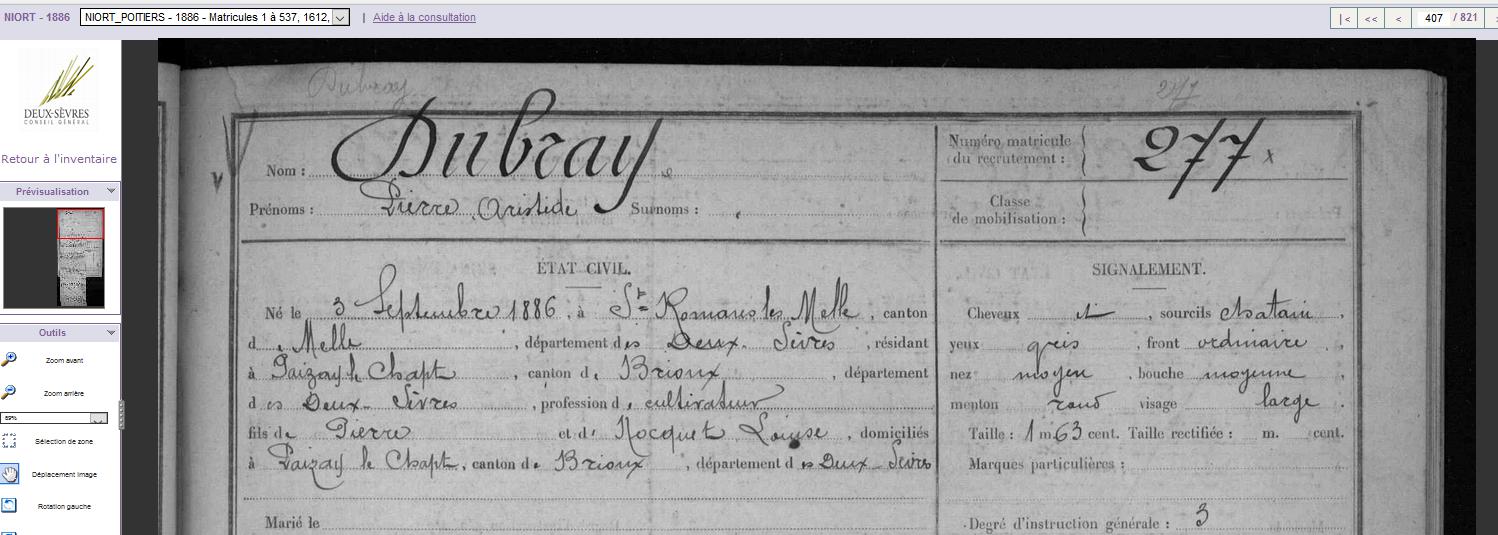 NIORT - 1886 NIORT_POITIERS - 1886 - Matricules 1 à 537, 1612, | Aide à la consultation |< << < 407 / 821
DEUX-SÈVRES
CONSEIL GÉNÉRAL
Retour à l'inventaire
Prévisualisation
Outils
Zoom avant
Zoom arrière
Sélection de zone
Déplacement image
Rotation gauche
Dubray 277
Nom : Dubray
Prénoms : Pierre Aristide Surnoms :
Numéro matricule
du recrutement : 277 x
Classe
de mobilisation :
ÉTAT CIVIL.
Né le 3 Septembre 1886, à St Romans les Melle, canton
d Melle, département des Deux-Sèvres, résidant
à Paizay le Chapt, canton de Brioux, département
des Deux-Sèvres, profession de cultivateur
fils de Pierre et de Nocquet Louise, domiciliés
à Paizay le Chapt, canton de Brioux, département des Deux-Sèvres
Marié le
SIGNALEMENT.
Cheveux et, sourcils chatain,
yeux gris, front ordinaire,
nez moyen, bouche moyenne,
menton rond visage large.
Taille : 1 m 63 cent. Taille rectifiée : m. cent.
Marques particulières :
Degré d'instruction générale : 3